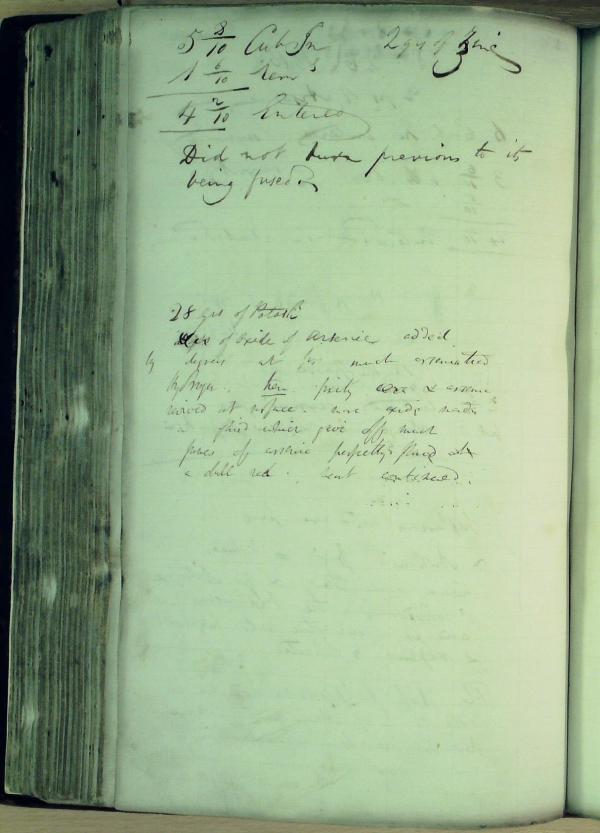 5 8/10 Cub In 2 grs of Zinc
1 6/10 rem^g
4 2/10 Entered
Did not burn previous to its
being fused
28 grs of Potash
of Oxide of Arsenic added
by degrees at first much arsenuretted
Hydrogen. then & arsenic
at surface. more oxide made
a fluid which gave off much
fumes of arsenic perfectly fluid at
a dull red. heat continued.